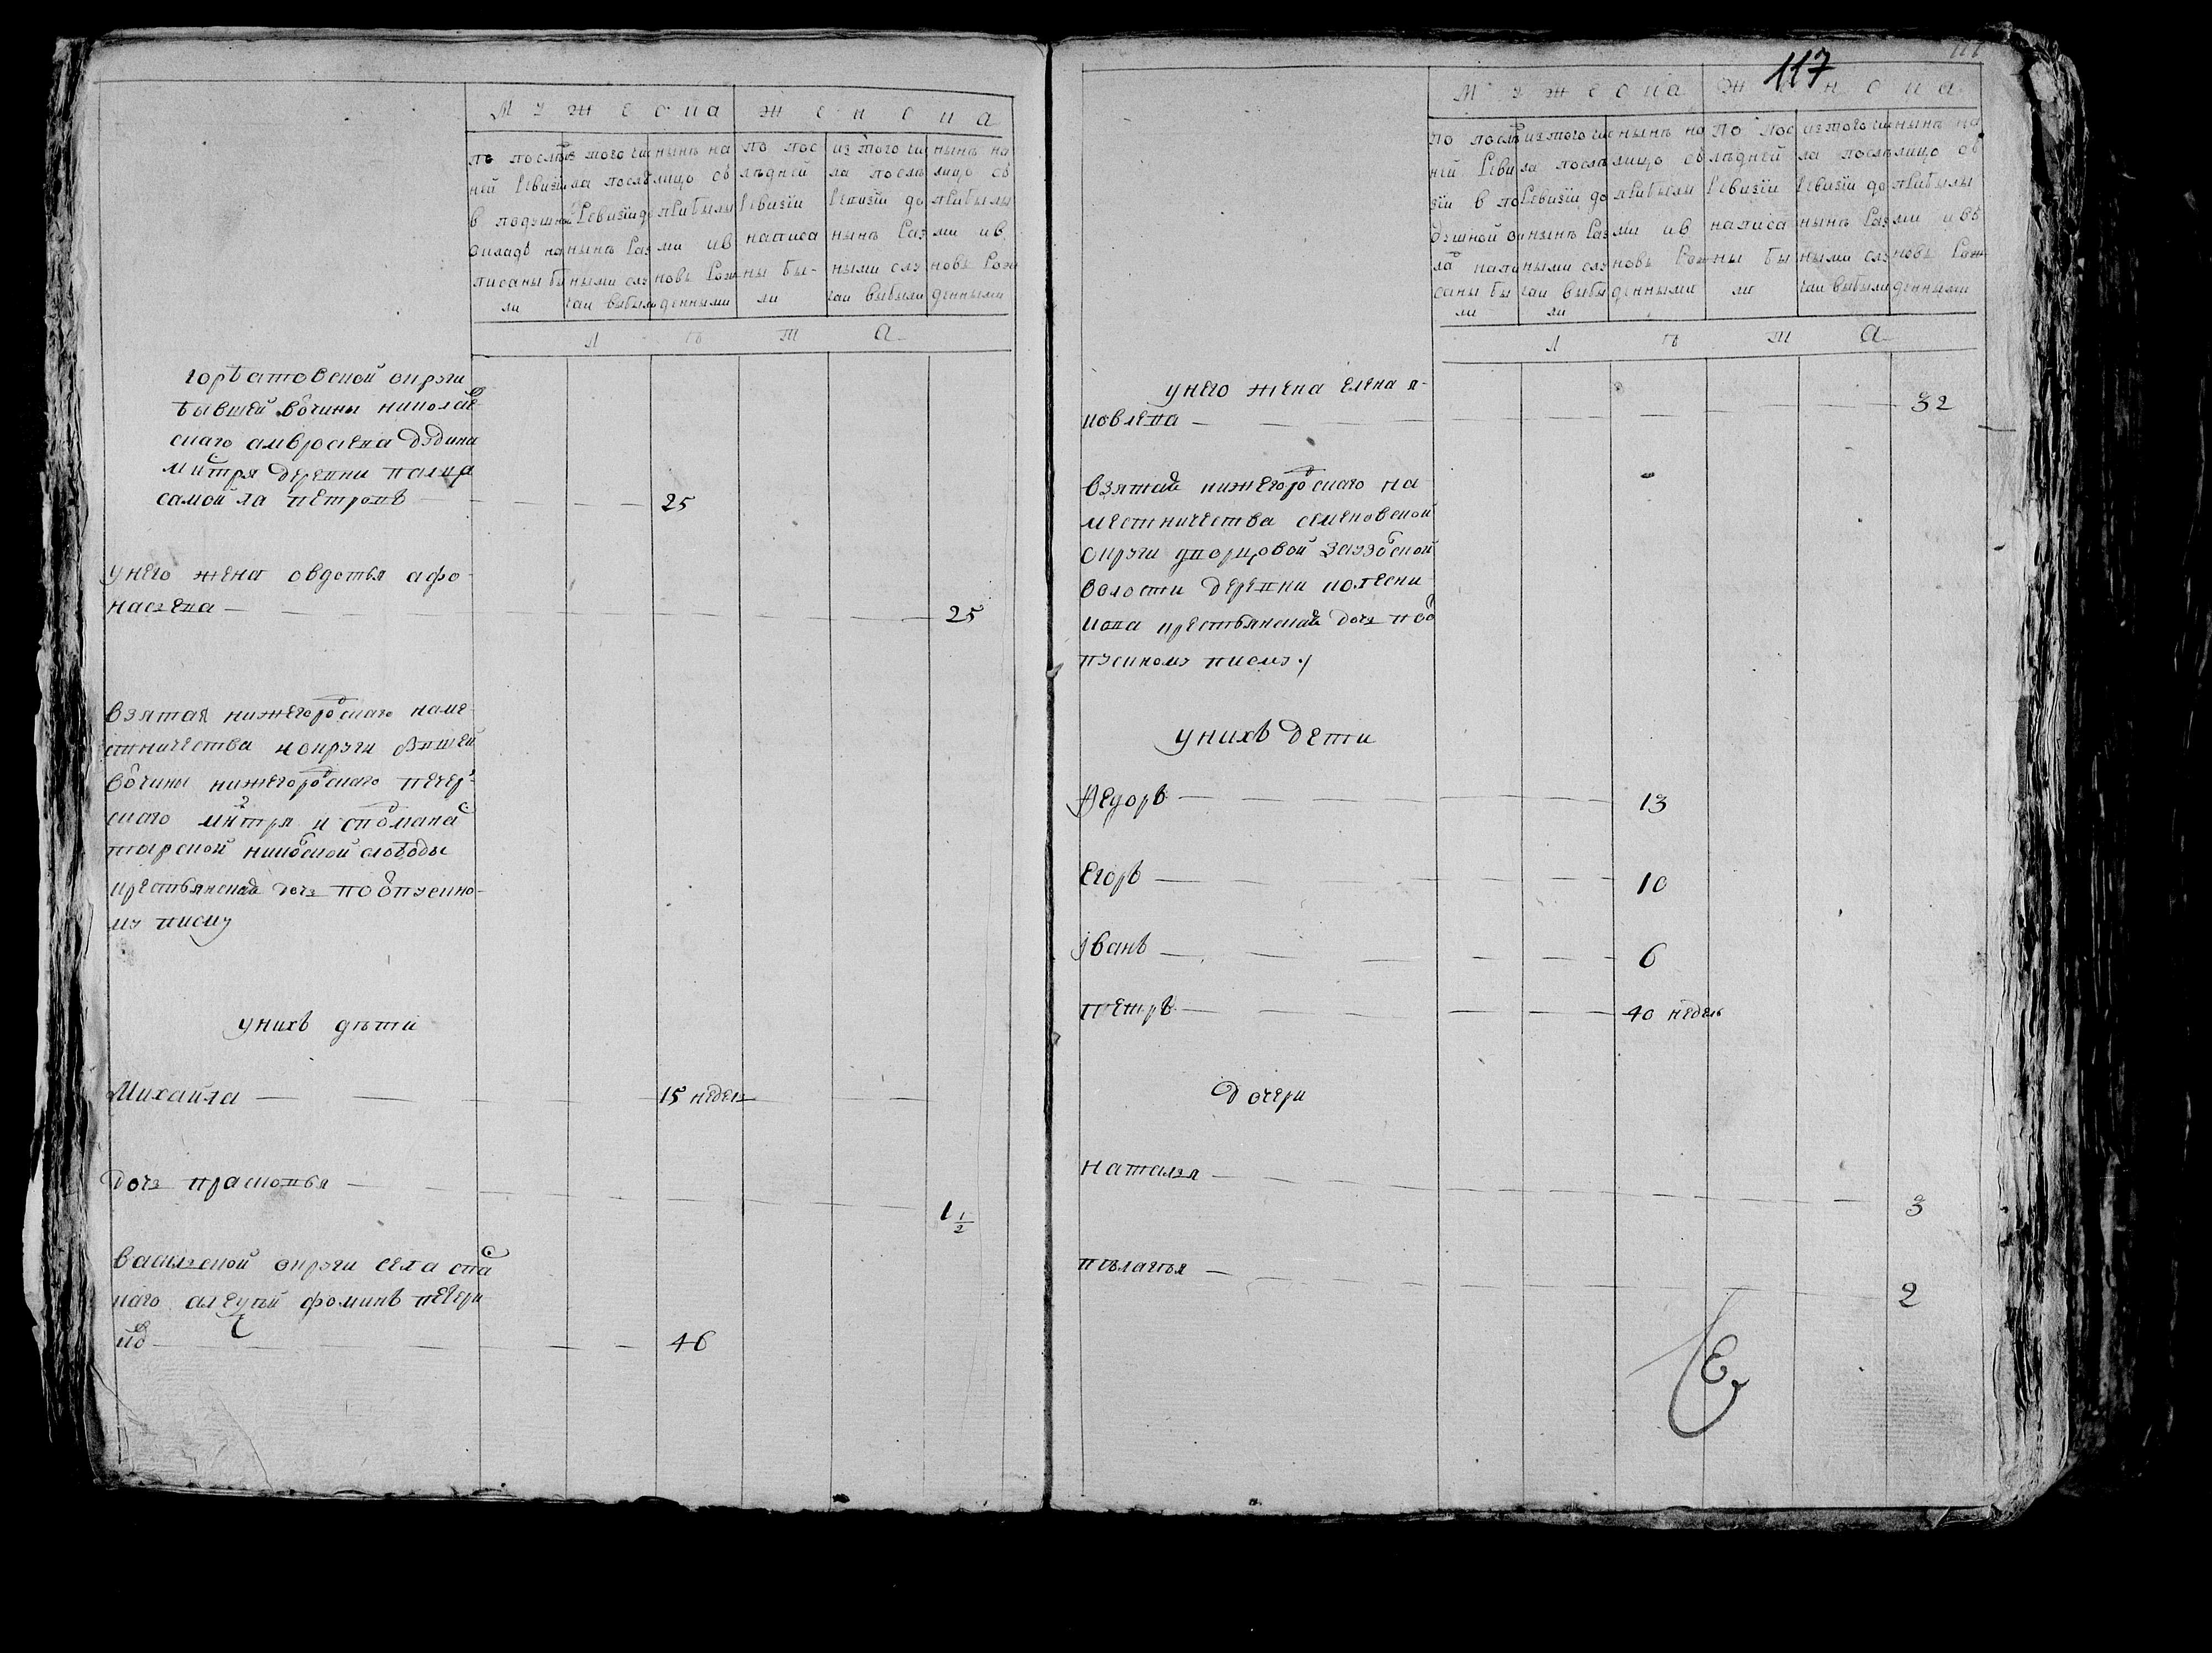 мужеска женска
по послед
ней ревизии
в подушном
окладе на
писаны бы
ли
из того чис
ла после
ревизии до
ныне раз
ными слу
чаи выбыли
ныне на
лицо съ
прибылы
ми и в
новь рож
денными
по пос
ледней
ревизии
написа
ны бы-
ли
из того чи
ла после
ревизии до
ныне раз
ными слу
чаи выбыли
ныне на
лицо съ
прибылы
ми и в
новь рож
денными
лѣта
горбатовской округи
бывшей вотчины николаев
скаго амвросиева дудина
мнтря деревни
самойла петровъ 25
у него жена овдотья афо
насьева 25
взятая нижегородскаго наме
стничества округи бывшей
вотчины нижегородскаго печер
скаго мнтря
слободы
крестьянская дочь по отпускно
му писму
у нихъ дѣти
Михайла 15 недель
дочь прасковья 1 1/2
васильской округи села спа
скаго алексѣй фоминъ
46
117
мужеска женска
по послѣд
ней реви
зіи в по
душной ок
ла напи
саны бы
ли
из того чис
ла послѣ
ревизіи до
нынѣ раз
ными слу
чаи выбы
ли
нынѣ на
лицо съ
прибылы
ми и в
новь рож
денными
по пос
лѣдней
ревизіи
написа
ны бы
ли
из того чи
ла послѣ
ревизіи до
нынѣ раз
ными слу
чаи выбыли
нынѣ на
лицо съ
прибылы
ми и въ
новь рож
денными
лѣта
у него жена елена я-
ковлева 32
взятая нижегородскаго на
местничества семеновской
округи дворцовой заузолской
волости деревни колесни
кова крестьянская дочь по от
пускному писму
у нихъ дети
Федоръ 13
Егоръ 10
Іванъ 6
петръ 40 недель
дочери
наталья 3
пелагья 2